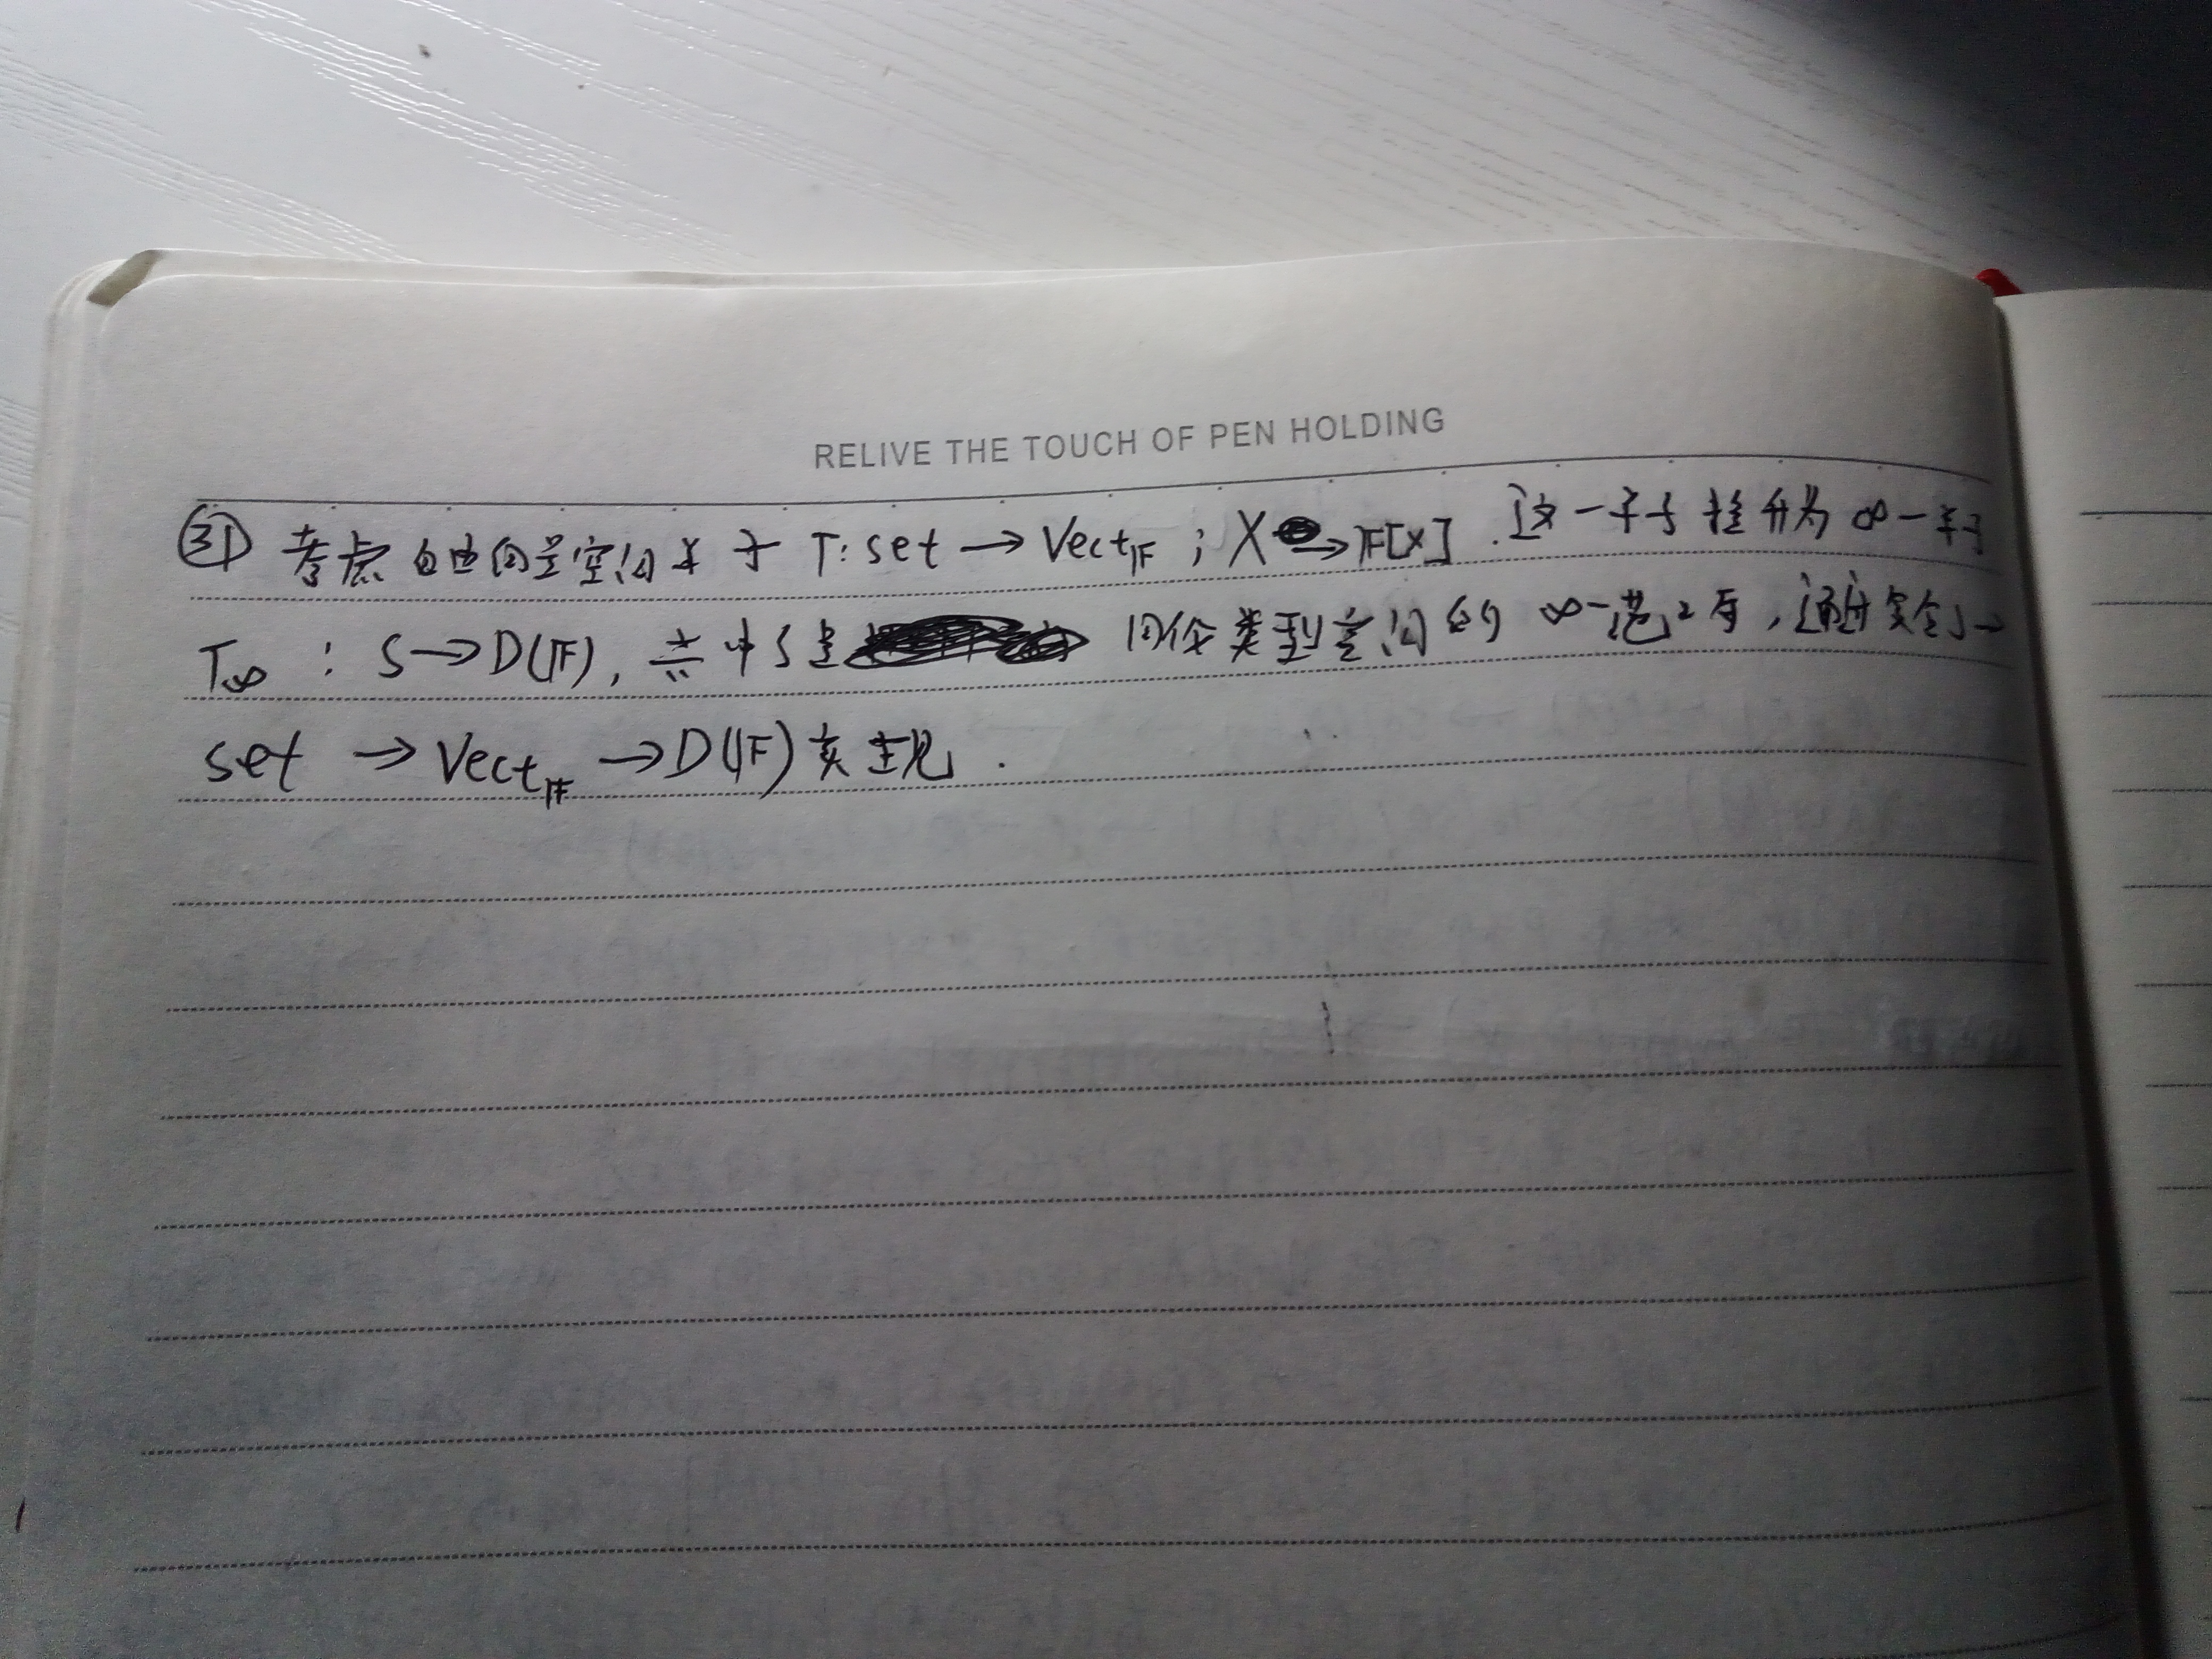 RELIVE THE TOUCH OF PEN HOLDING
③ 考虑自由向量空间关于 T: set → Vect_𝔽 ; X → 𝔽[X] . 这一子于 提升为 ∞-子
T_∞ : S → D(𝔽), 其中 S 是 同伦类型空间的 ∞-范畴, 通过
set → Vect_𝔽 → D(𝔽) 实现 .